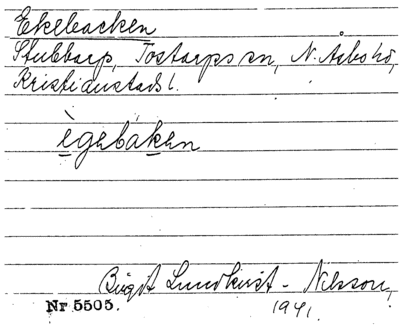 Ekebacken
Stubbarp, Tostarps sn, N. Åsbo hd,
Kristianstads l.
ègebakən
Birgit Lundkvist - Nilsson,
Nr 5505. 1941.